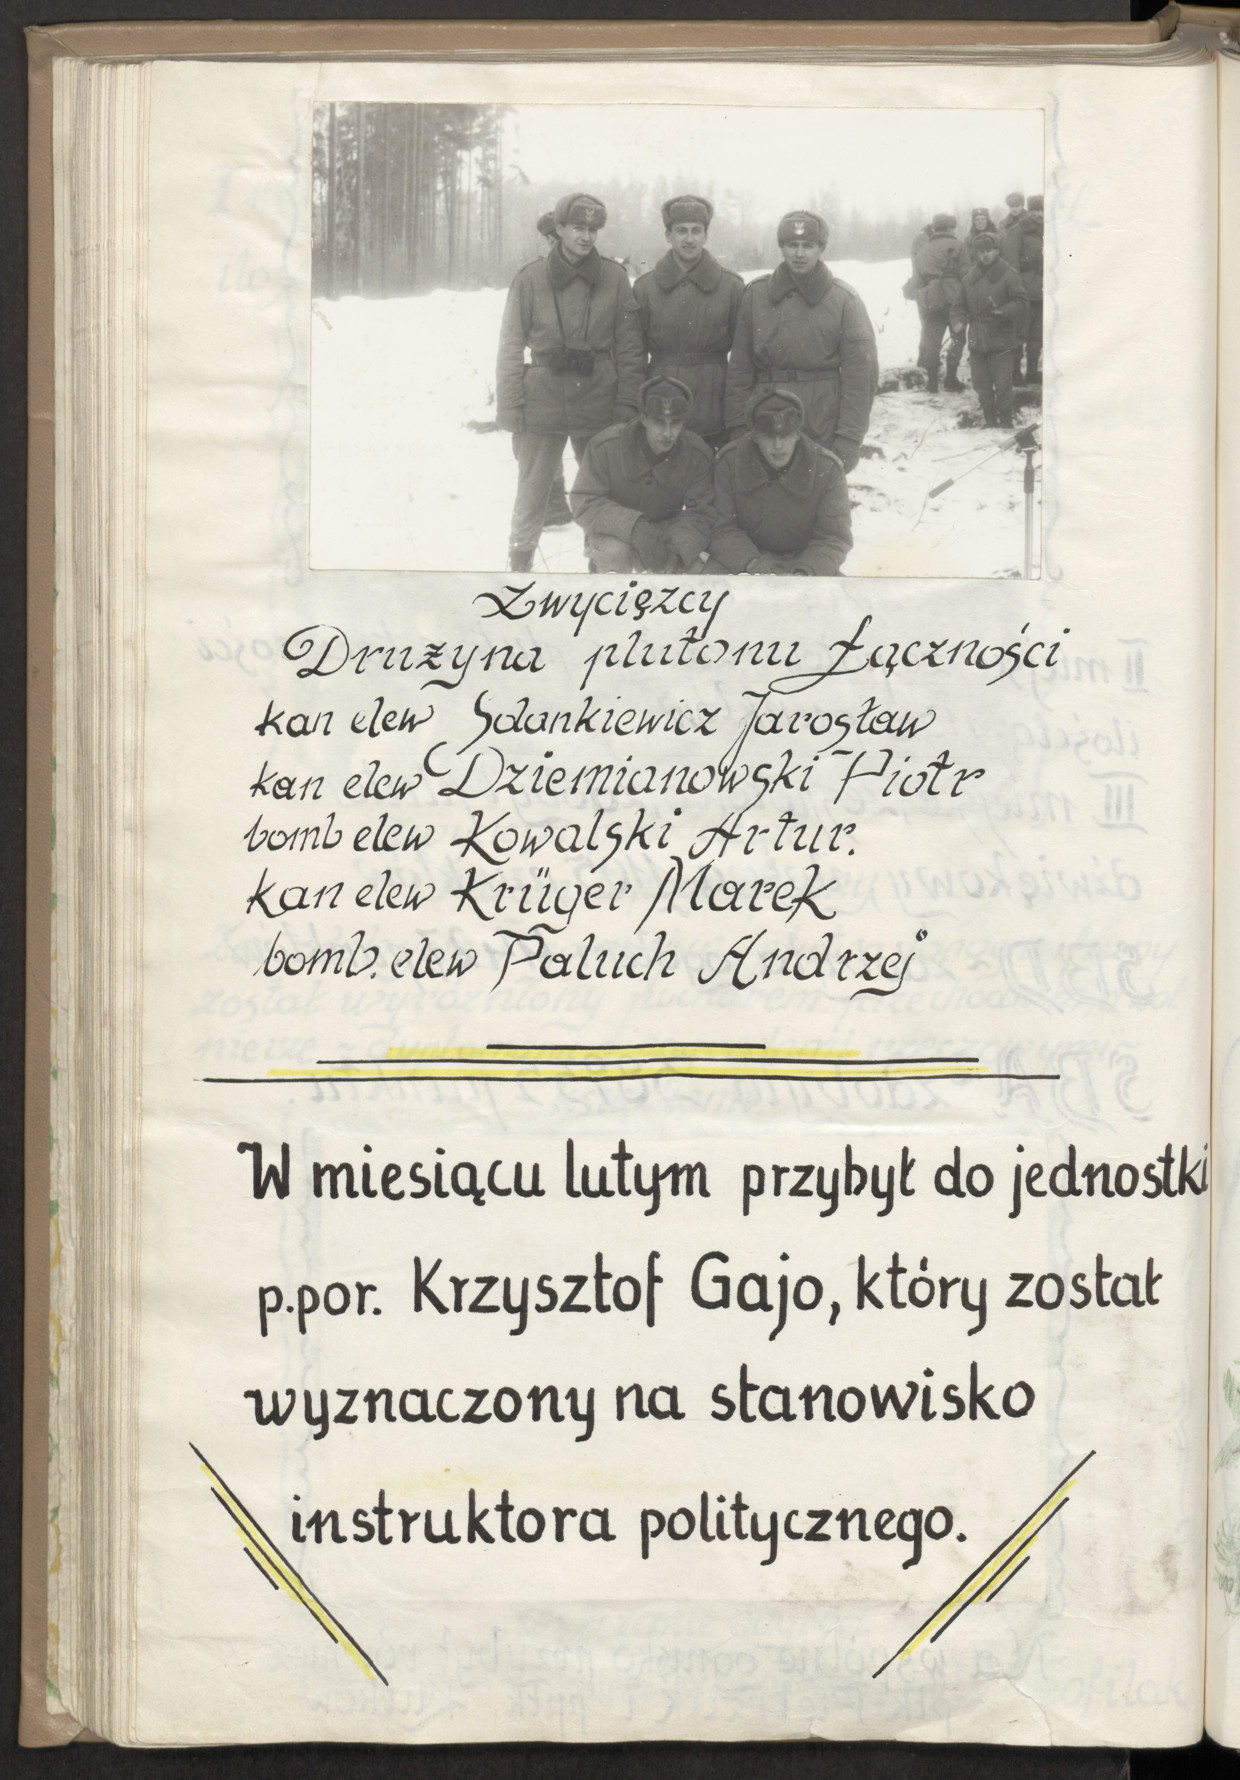 Zwycięzcy
Drużyna plutonu Łączności
kan elew Sdankiewicz Jarosław
kan elew Dziemianowski Piotr
bomb elew Kowalski Artur.
kan elew Krüger Marek
bomb. elew Paluch Andrzej
W miesiącu lutym przybył do jednostki
p.por. Krzysztof Gajo, który został
wyznaczony na stanowisko
instruktora politycznego.